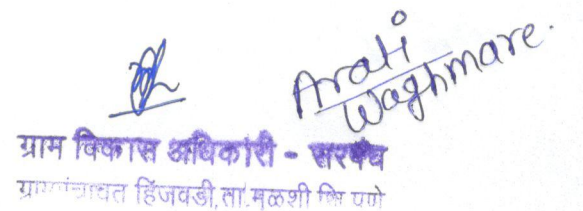 Arati
Waghmare.
ग्राम विकास अधिकारी - सरपंच
ग्रामपंचायत हिंजवडी, ता. मळशी जि पुणे